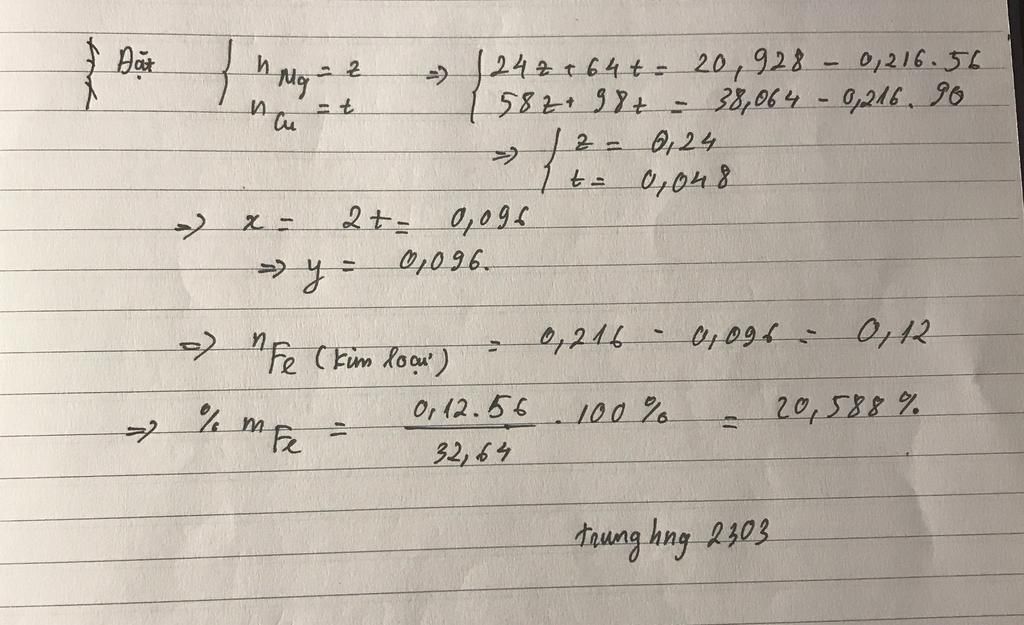 Đặt { n Mg = z => { 24z + 64t = 20,928 - 0,216.56
n Cu = t 58z + 98t = 38,064 - 0,216.90
=> { z = 0,24
t = 0,048
=> x = 2t = 0,096
=> y = 0,096.
=> n Fe (kim loại) = 0,216 - 0,096 = 0,12
=> % m Fe = 0,12.56 / 32,64 . 100% = 20,588 %.
trung hng 2303